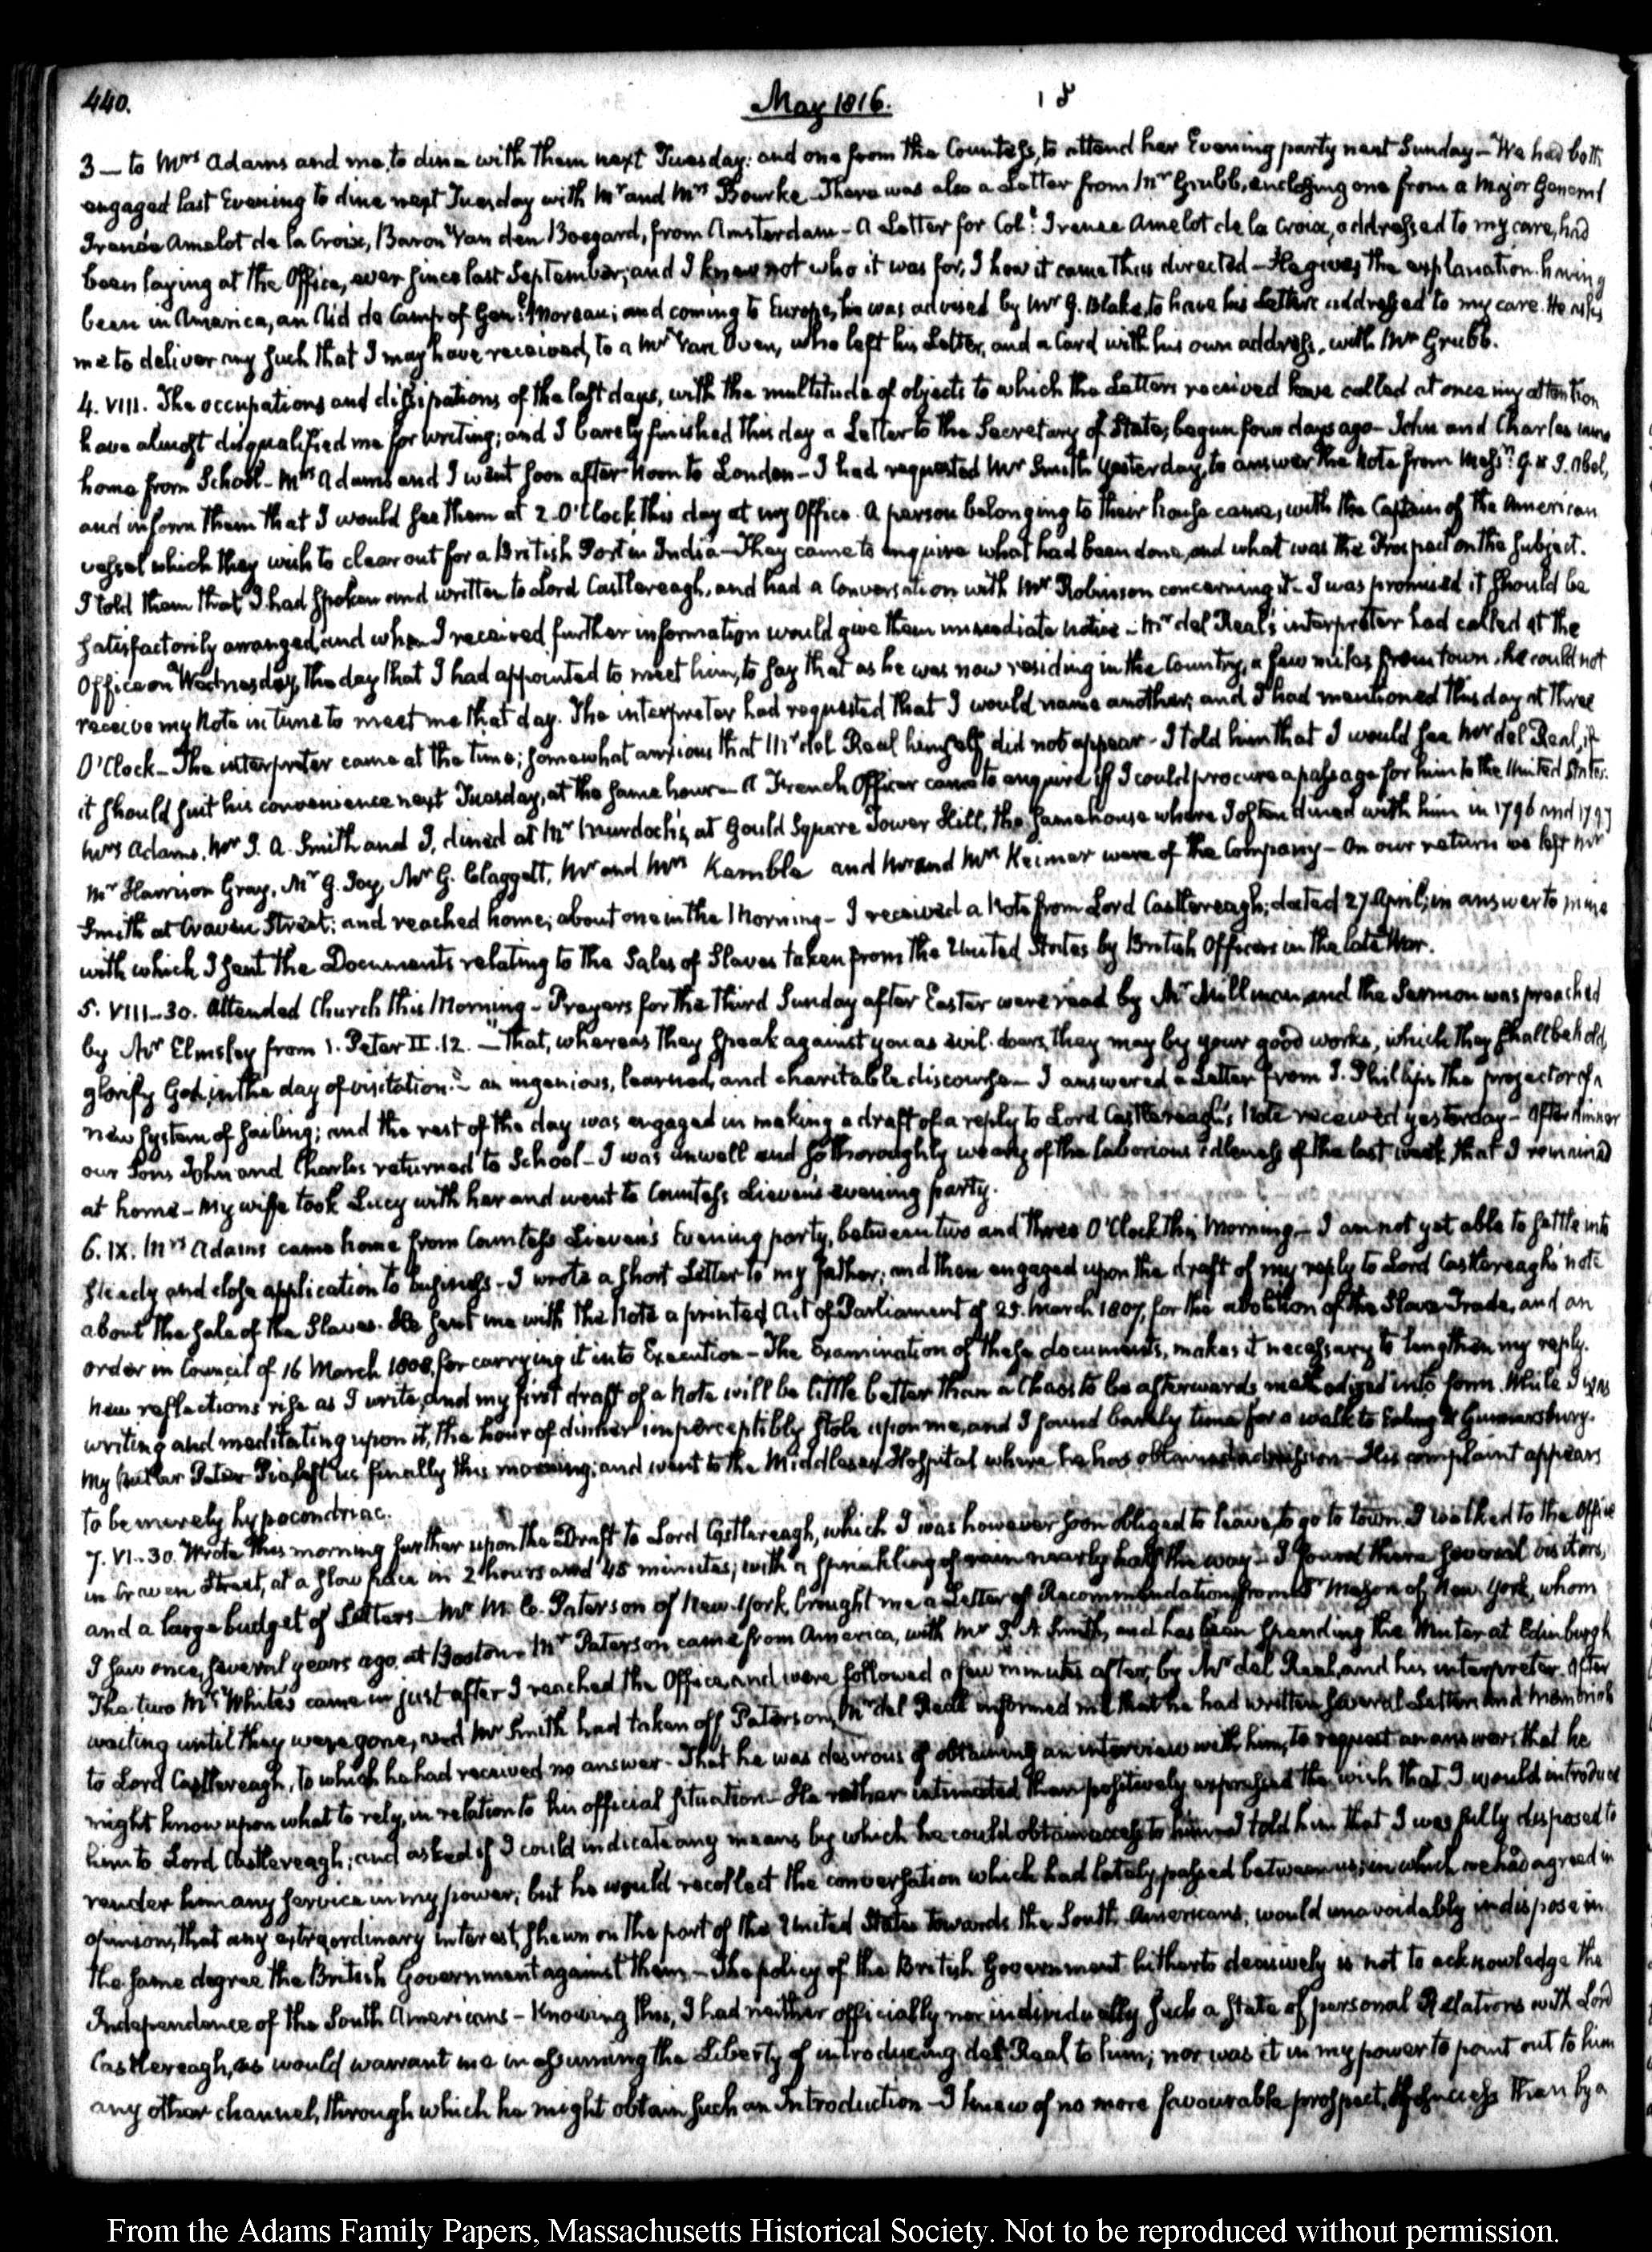 440.
May 1816.
3 — to Mrs Adams and me, to dine with them next Tuesday: and one from the Countess, to attend her Evening party next Sunday — We had both
engaged last Evening to dine next Tuesday with Mr and Mrs Bourke — There was also a Letter from Mr Grubb, enclosing one from a Major General
Irenée Amelot de la Croix, Baron Van den Boegard, from Amsterdam — A Letter for Coll. Irenee Amelot de la Croix, addressed to my care, had
been laying at the Office, ever since last September; and I knew not who it was for, I how it came thus directed — He gives the explanation. having
been in America, an Aid de Camp of Genl. Moreau; and coming to Europe, he was advised by Mr G. Blake, to have his Letters addressed to my care. He asks
me to deliver any such that I may have received, to a Mr Van Oven, who left his Letter, and a Card with his own address, with Mr Grubb.
4. VIII. The occupations and dissipations of the last days, with the multitude of objects to which the Letters received have called at once my attention
have almost disqualified me for writing; and I barely finished this day a Letter to the Secretary of State, begun four days ago — John and Charles came
home from School — Mrs Adams and I went soon after Noon to London — I had requested Mr Smith yesterday, to answer the Note from Messrs. G. & J. Abel,
and inform them that I would see them at 2 O'Clock this day at my Office. A person belonging to their house came, with the Captain of the American
vessel which they wish to clear out for a British Port in India — They came to enquire what had been done, and what was the Prospect on the subject.
I told them that I had spoken and written to Lord Castlereagh, and had a Conversation with Mr Robinson concerning it — I was promised it should be
satisfactorily arranged, and when I received further information would give them immediate notice — Mr del Real's interpreter had called at the
Office on Wednesday, the day that I had appointed to meet him, to say that as he was now residing in the Country, a few miles from town, he could not
receive my Note in time to meet me that day. The interpreter had requested that I would name another; and I had mentioned this day at three
O'Clock — The interpreter came at the time; somewhat anxious that Mr del Real himself did not appear — I told him that I would see Mr del Real, if
it should suit his convenience next Tuesday, at the same hour — A French Officer came to enquire if I could procure a passage for him to the United States.
Mrs Adams, Mr J. A. Smith and I, dined at Mr Murdoch's, at Gould Square Tower Hill, the same house where I often dined with him in 1796 and 1797
Mr Harrison Gray, Mr G. Joy, Mr G. Claggett, Mr and Mrs Kamble and Mr and Mrs Keimer were of the Company — On our return we left Mr
Smith at Craven Street; and reached home, about one in the Morning — I received a Note from Lord Castlereagh; dated 27 April; in answer to mine
with which I sent the Documents relating to the Sales of Slaves taken from the United States by British Officers in the late War.
5. VIII–30. Attended Church this Morning — Prayers for the Third Sunday after Easter were read by Mr Millman and the Sermon was preached
by Mr Elmsley from 1. Peter II. 12. — "That, whereas they speak against you as evil-doers, they may by your good works, which they shall behold,
glorify God, in the day of visitation" — an ingenious, learned, and charitable discourse — I answered a Letter from J. Phillips the projector of a
new System of sailing; and the rest of the day was engaged in making a draft of a reply to Lord Castlereagh's Note received yesterday — After dinner
our Sons John and Charles returned to School — I was unwell and so thoroughly weary of the laborious idleness of the last week, that I remained
at home — My wife took Lucy with her and went to Countess Lieven's evening party.
6. IX. Mrs Adams came home from Countess Lieven's Evening party, between two and three O'Clock this Morning — I am not yet able to settle into
steady and close application to business — I wrote a short Letter to my father; and then engaged upon the draft of my reply to Lord Castlereagh's note
about the sale of the Slaves. He sent me with the Note a printed Act of Parliament of 25. March 1807, for the abolition of the Slave Trade, and an
order in Council of 16 March 1808, for carrying it into Execution — The Examination of these documents, makes it necessary to lengthen my reply.
New reflections rise as I write, and my first draft of a Note will be little better than a Chaos to be afterwards methodized into form. While I was
writing and meditating upon it, the hour of dinner imperceptibly stole upon me, and I found barely time for a walk to Ealing & Gunnersbury.
My butler Peter Pio left us finally this morning; and went to the Middlesex Hospital where he has obtained admission — His complaint appears
to be merely hypocondriac.
7. VI–30. Wrote this morning further upon the Draft to Lord Castlereagh, which I was however soon obliged to leave, to go to town. I walked to the Office
in Craven Street, at a slow pace in 2 hours and 45 minutes; with a sprinkling of rain nearly half the way — I found there several visitors,
and a large budget of Letters — Mr M. C. Paterson of New York, brought me a Letter of Recommendation from Dr Mason of New York, whom
I saw once, several years ago, at Boston. Mr Paterson came from America, with Mr J. A. Smith, and has been spending the Winter at Edinburgh
The two Mr Whites came in just after I reached the Office, and were followed a few minutes after, by Mr del Real, and his interpreter. After
waiting until they were gone, and Mr Smith had taken off Paterson, Mr del Real informed me that he had written several Letters and Memorials
to Lord Castlereagh, to which he had received no answer — That he was desirous of obtaining an interview with him, to request an answer that he
might know upon what to rely, in relation to his official situation — He rather intimated than positively expressed the wish that I would introduce
him to Lord Castlereagh; and asked if I could indicate any means by which he could obtain access to him — I told him that I was fully disposed to
render him any service in my power; but he would recollect the conversation which had lately passed between us; in which we had agreed in
opinion, that any extraordinary interest, shewn on the part of the United States towards the South Americans, would unavoidably indispose in
the same degree the British Government against them — The policy of the British Government hitherto decisively is not to acknowledge the
Independence of the South Americans — Knowing this, I had neither officially nor individually such a state of personal Relations with Lord
Castlereagh, as would warrant me in assuming the Liberty of introducing del Real to him; nor was it in my power to point out to him
any other channel, through which he might obtain such an Introduction — I knew of no more favourable prospect, of success than by a
From the Adams Family Papers, Massachusetts Historical Society. Not to be reproduced without permission.